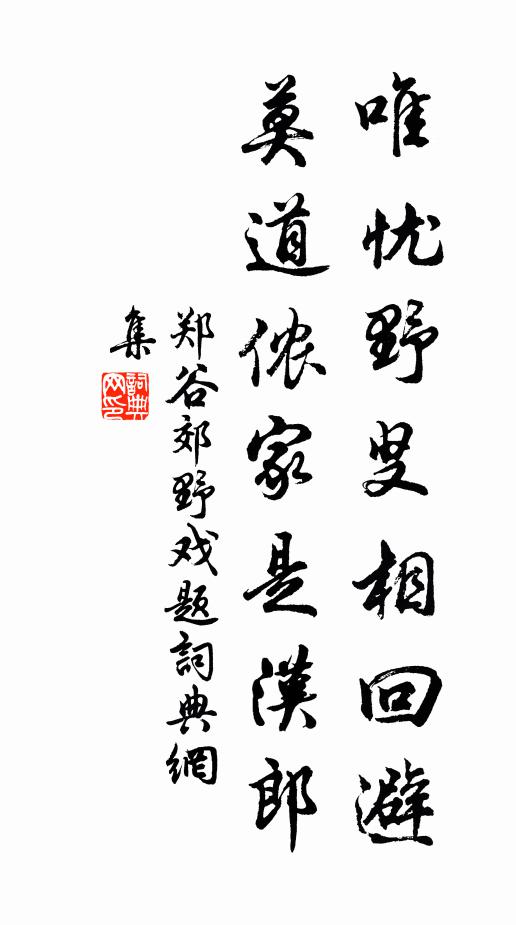 唯忧野叟相回避
莫道侬家是漢郎
郑谷郊野戏题詞典網
集
詞典
网印